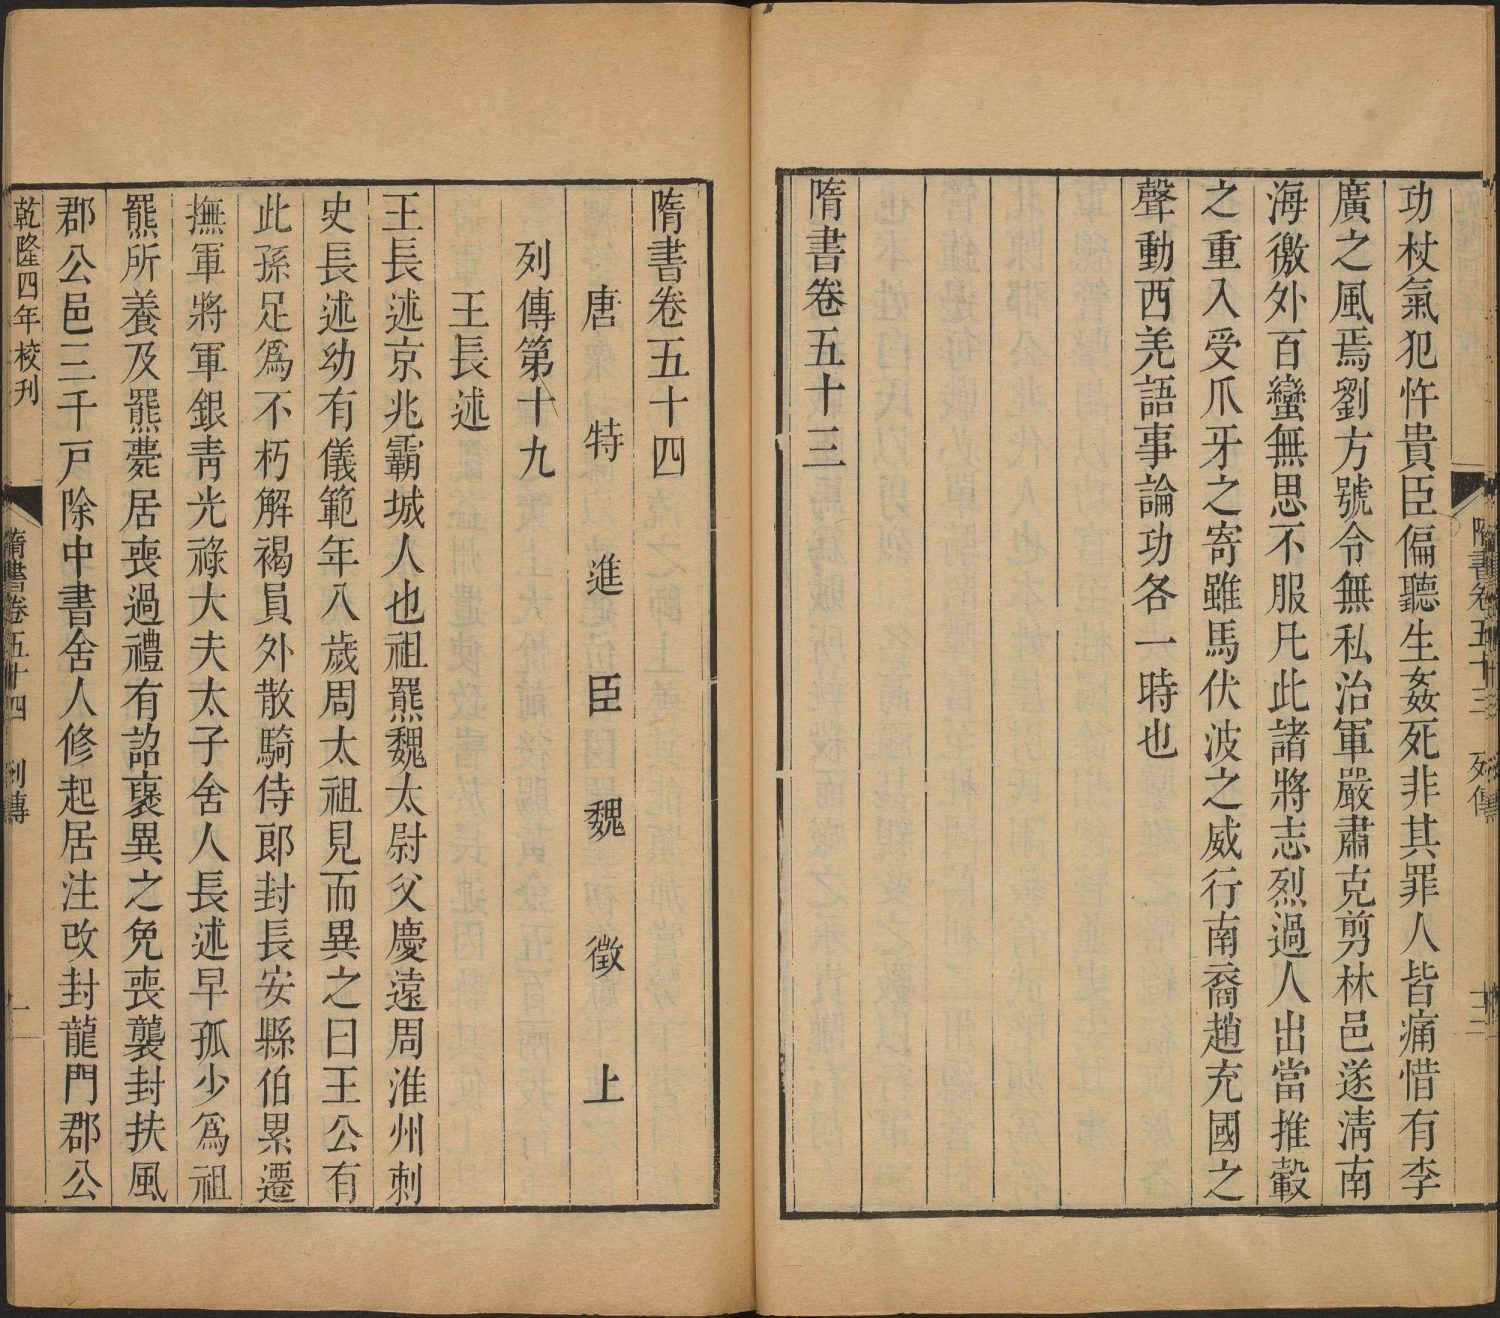 功杖氣犯忤貴臣偏聽生姦死非其罪人皆痛惜有李
廣之風焉劉方號令無私治軍嚴肅克剪林邑遂淸南
海徼外百蠻無思不服凡此諸將志烈過人出當推轂
之重入受爪牙之寄雖馬伏波之威行南裔趙充國之
聲動西羌語事論功各一時也
隋書卷五十三
隋書卷五十三 列傳 十二
隋書卷五十四
唐特進臣魏徵上
列傳第十九
王長述
王長述京兆霸城人也祖羆魏太尉父慶遠周淮州刺
史長述幼有儀範年八歲周太祖見而異之曰王公有
此孫足爲不朽解褐員外散騎侍郞封長安縣伯累遷
撫軍將軍銀靑光祿大夫太子舍人長述早孤少爲祖
羆所養及羆薨居喪過禮有詔襃異之免喪襲封扶風
郡公邑三千戸除中書舍人修起居注改封龍門郡公
乾隆四年校刊
隋書卷五十四 列傳 一